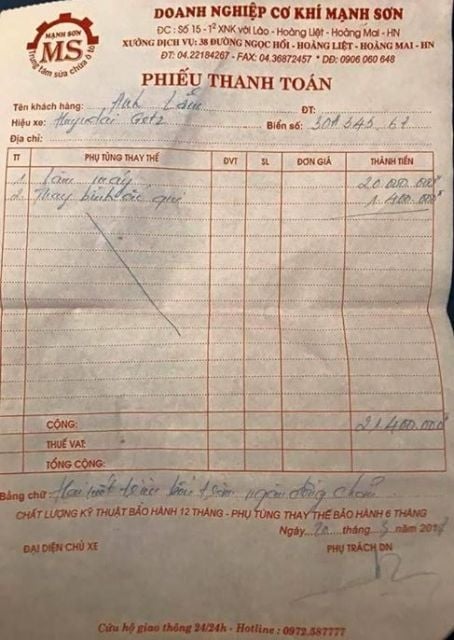 DOANH NGHIỆP CƠ KHÍ MẠNH SƠN
MẠNH SƠN
MS
Trung tâm sửa chữa ô tô
ĐC : Số 15 - T² XNK với Lào - Hoàng Liệt - Hoàng Mai - HN
XƯỞNG DỊCH VỤ: 38 ĐƯỜNG NGỌC HỒI - HOÀNG LIỆT - HOÀNG MAI - HN
ĐT: 04.22184267 - FAX: 04.36872457 * DĐ: 0906 060 648
PHIẾU THANH TOÁN
Tên khách hàng: Anh ĐT:
Hiệu xe: Huyndai Getz Biển số:
Địa chỉ:
TT PHỤ TÙNG THAY THẾ ĐVT SL ĐƠN GIÁ THÀNH TIỀN
1. Làm máy 20.000.000đ
2. Thay bình ắc qui 1.400.000đ
CỘNG: 21.400.000đ
THUẾ VAT:
TỔNG CỘNG:
Bằng chữ: Hai mốt triệu bốn trăm ngàn đồng chẵn
CHẤT LƯỢNG KỸ THUẬT BẢO HÀNH 12 THÁNG - PHỤ TÙNG THAY THẾ BẢO HÀNH 6 THÁNG
Ngày 20 tháng 3 năm 201
ĐẠI DIỆN CHỦ XE PHỤ TRÁCH DN
Cứu hộ giao thông 24/24h - Hotline : 0972.587777